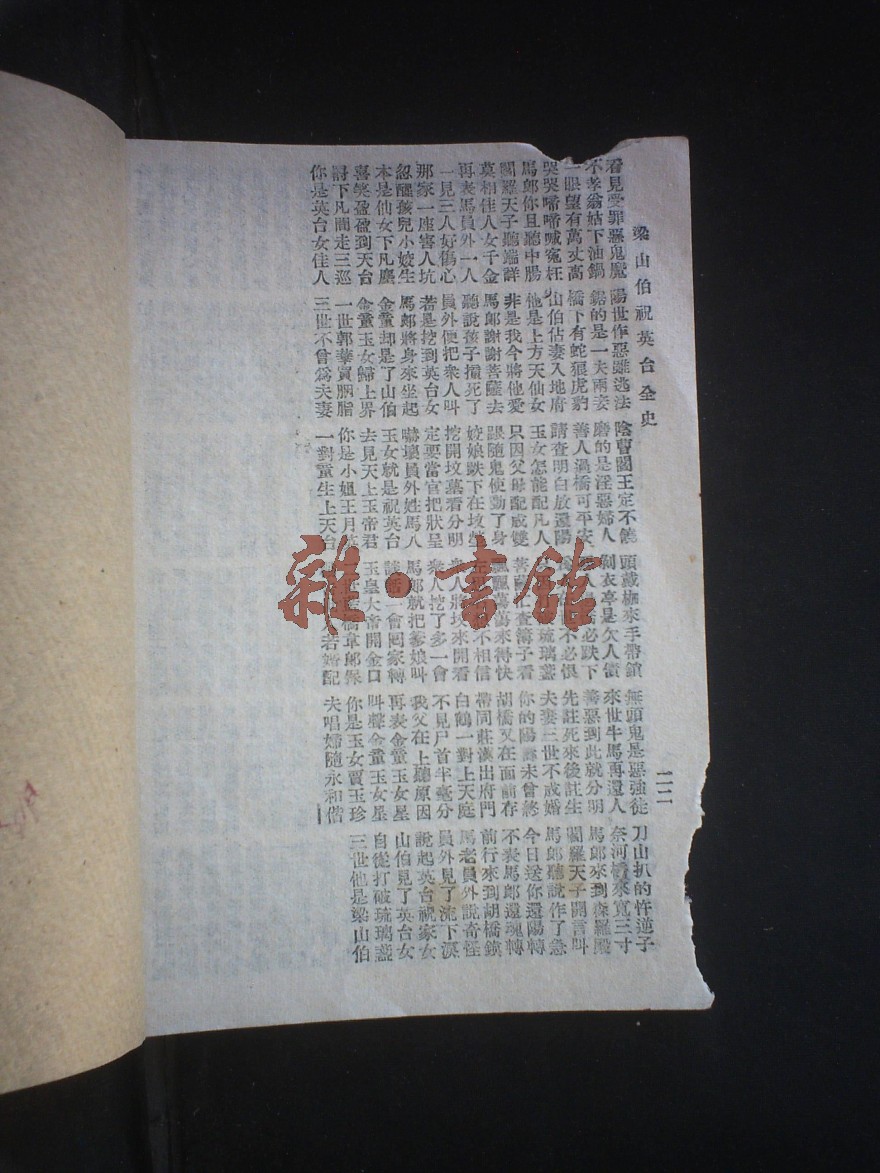 梁山伯祝英台全史 二二
看見受罪惡鬼魔 陽世作惡難逃法 陰曹閻王定不饒 頭戴枷來手帶鎖 無頭鬼是惡強徒 刀山扒的忤逆子
不孝翁姑下油鍋 鋸的是一夫兩妻 磨的是淫惡婦人 剝衣亭是欠人債 來世牛馬再還人 奈河橋來寬三寸
一眼望有萬丈高 橋下有蛇狼虎豹 善人過橋可平安 人必跌下 善惡到此就分明 馬郎來到森羅殿
哭哭啼啼喊冤枉 山伯佔妻入地府 請查明白放還陽 不必恨 先註死來後註生 閻羅天子開言叫
馬郎你且聽中腸 他是上方天仙女 玉女怎能配凡人 琉璃盞 夫妻三世不成婚 馬郎聽說作了急
閻羅天子聽端詳 非是我今將他愛 只因父母配成雙 菩薩忙查簿子看 你的陽壽未曾終 今日送你還陽轉
莫相佳人女千金 馬郎謝謝菩薩去 跟隨鬼使動了身 飄飄蕩蕩來得快 胡橋又在面前存 不表馬郎還魂轉
再表馬員外一人 聽說孩子損死了 姣娘跌下在坟塋 不相信 帶同莊漢出府門 前行來到胡橋鎮
一見三人好傷心 員外便把衆人叫 挖開坟墓看分明 衆人將坟來開看 白鶴一對上天庭 馬老員外說奇怪
那家一座害人坑 若是挖到英台女 定要當官把狀呈 衆人挖了多一會 不見尸首半毫分 員外見了流下淚
忽醒孩兒小姣生 馬郎將身來坐起 嚇壞員外姓馬八 馬郎就把爹娘叫 我父在上聽原因 說起英台祝家女
本是仙女下凡塵 金童却是了山伯 玉女就是祝英台 談話一會回家轉 再表金童玉女星 山伯見了英台女
喜笑盈盈到天台 金童玉女歸上界 去見天上玉帝君 玉皇大帝開金口 叫聲金童玉女星 自從打破琉璃盞
討下凡間走三巡 一世郭華買胭脂 你是小姐王月英 橋韋郎保 你是玉女賈玉珍 三世他是梁山伯
你是英台女佳人 三世不曾爲夫妻 一對童生上天台 若婚配 夫唱婦隨永和偕
雜·書館